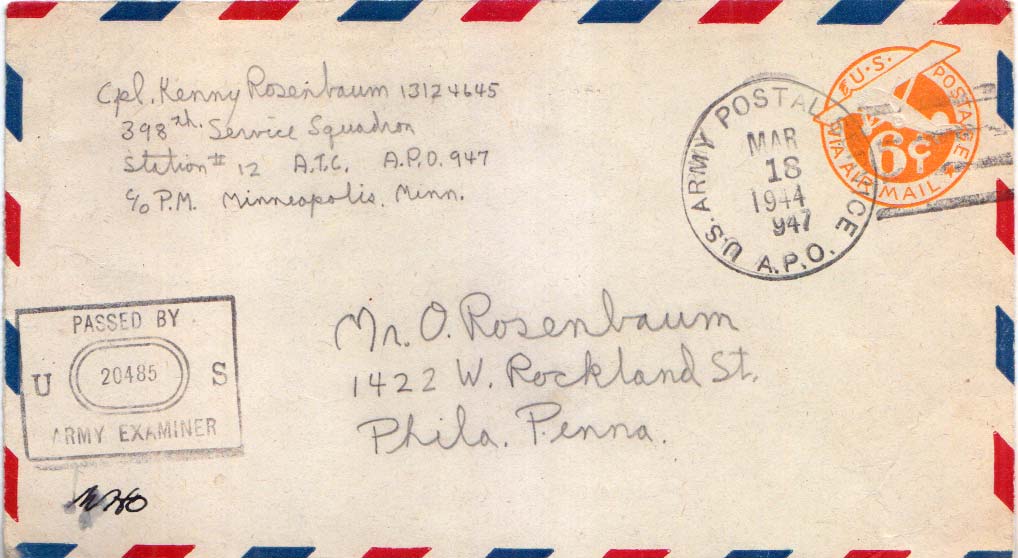 Cpl. Kenny Rosenbaum 13124645
398th. Service Squadron
Station # 12 A.T.C. A.P.O. 947
c/o P.M. Minneapolis, Minn.
U.S. ARMY POSTAL SERVICE
MAR
18
1944
947
A.P.O.
U.S. POSTAGE
6¢
VIA AIR MAIL
Mr. O. Rosenbaum
1422 W. Rockland St.
Phila. Penna.
PASSED BY
U 20485 S
ARMY EXAMINER